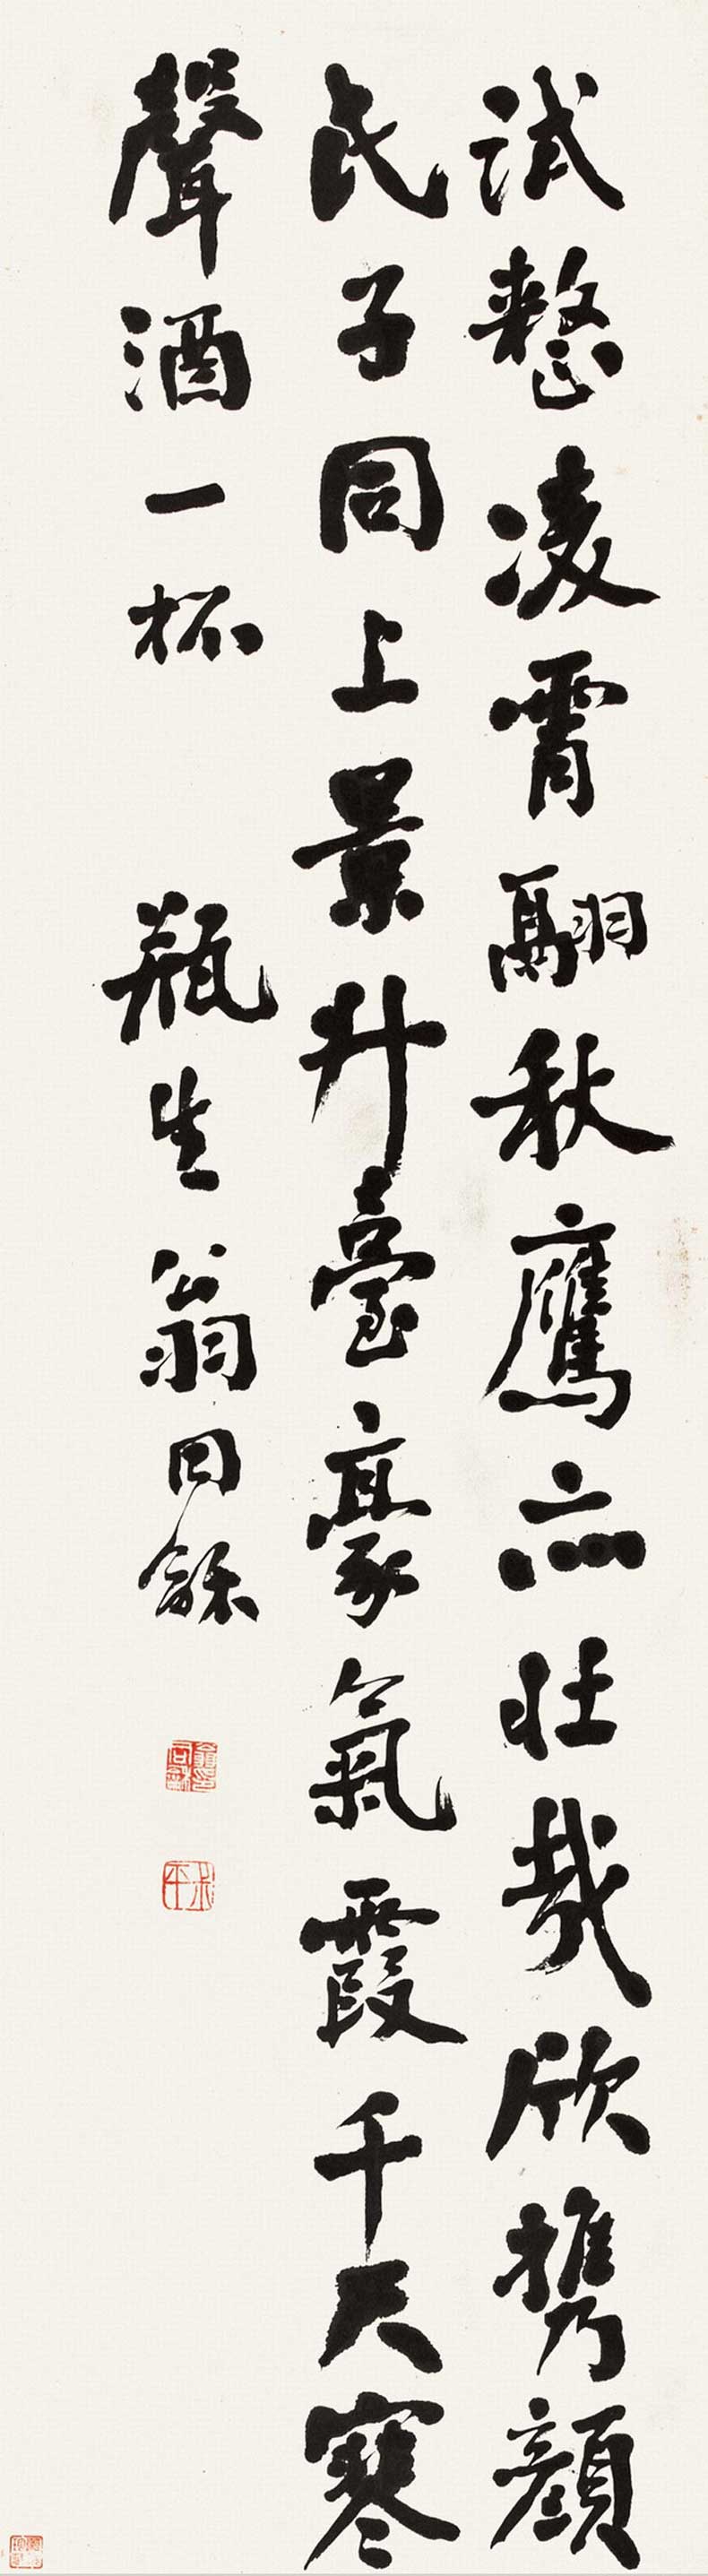 試整凌霄翮秋鷹亦壮哉欣携顔
氏子同上景升臺豪氣霞千尺寒
聲酒一杯
瓶生翁同龢